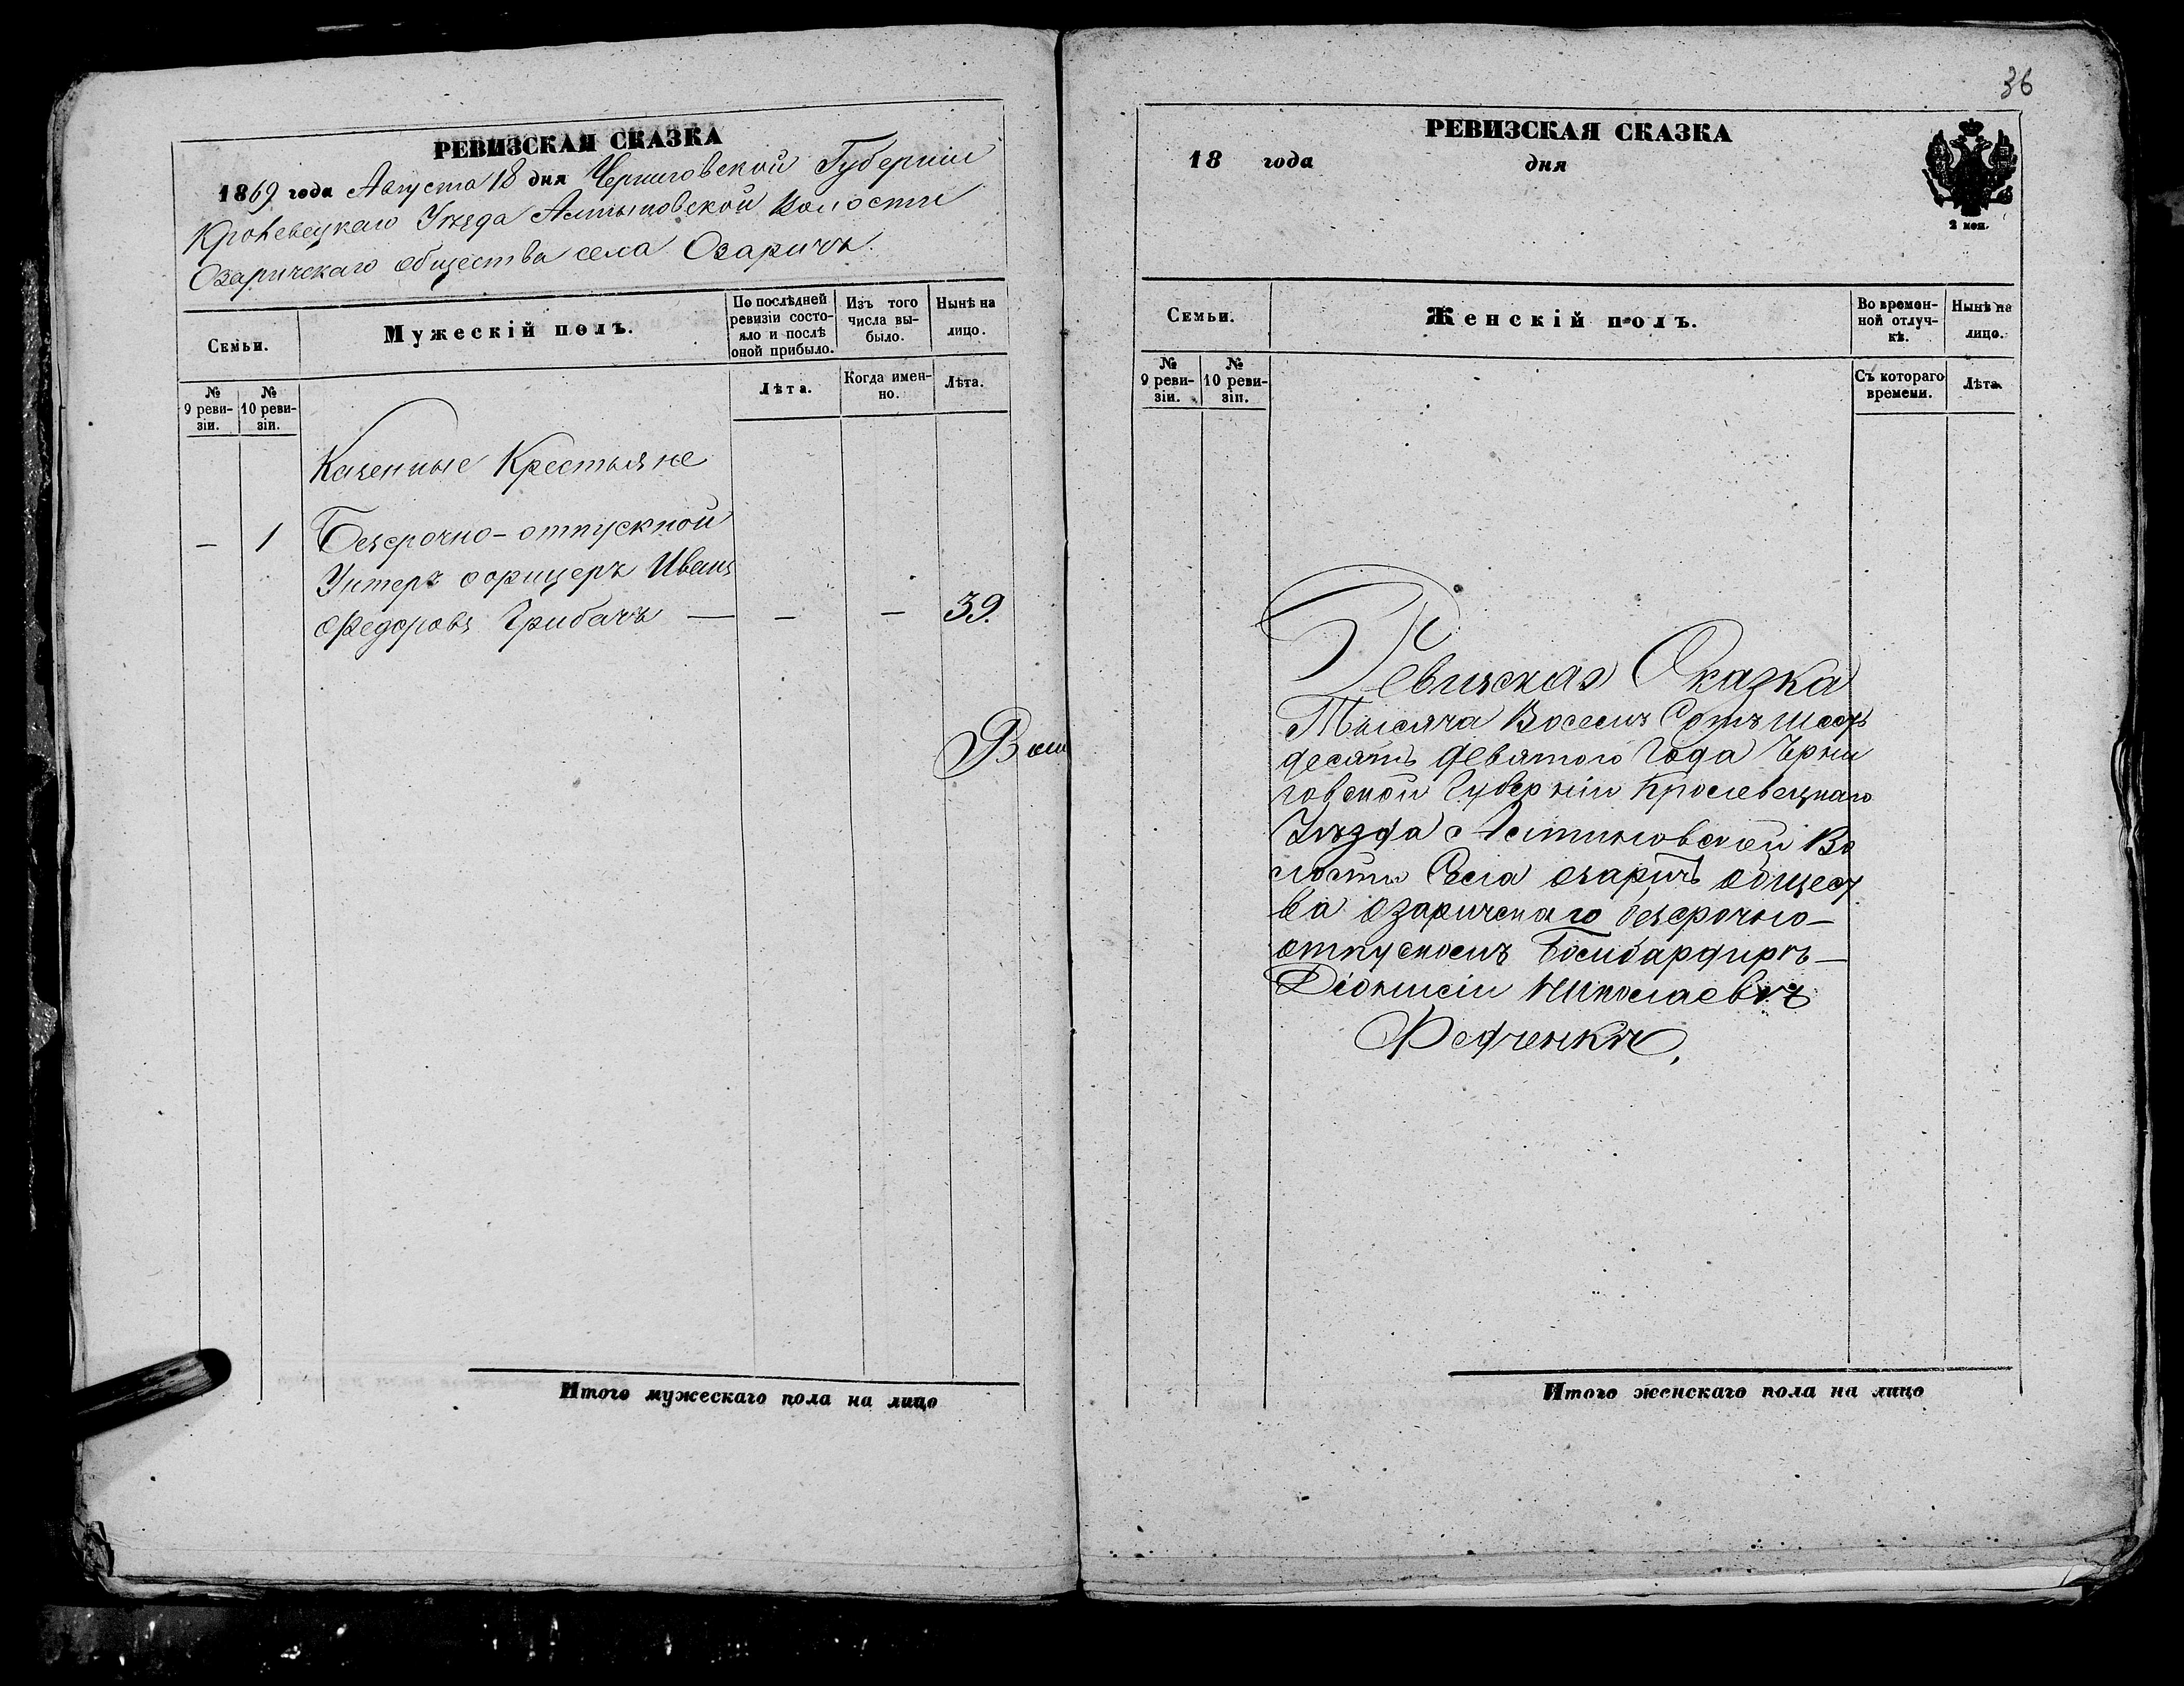 РЕВИЗСКАЯ СКАЗКА
1869 года Августа 18 дня Черниговской Губерніи
Кролевецкаго Уѣзда Алтыновской Волости
Озаричскаго общества села Озаричъ.
Семьи.
Мужескій полъ.
По послѣдней ревизіи состояло и послѣ оной прибыло.
Изъ того числа выбыло.
Нынѣ на лицо.
№ 9 ревизіи.
№ 10 ревизіи.
Лѣта.
Когда именно.
Лѣта.
Казенные Крестьяне
— 1 Безсрочно-отпускной
Унтеръ офицеръ Иванъ
Федоровъ Грибачъ — — — 39.
Итого мужескаго пола на лицо
36
РЕВИЗСКАЯ СКАЗКА
18 года дня
2 коп.
Семьи.
Женскій полъ.
Во временной отлучкѣ.
Нынѣ на лицо.
№ 9 ревизіи.
№ 10 ревизіи.
Съ котораго времени.
Лѣта.
Ревизская Сказка
Тысяча Восемъ Сотъ шесть
десятъ девятого Года Черни
говской Губерніи Кролевецкаго
Уѣзда Алтиновской Во
лости Села озаричъ общест
ва озаричскаго безсрочно-
отпускномъ Бомбардиръ —
Діонисіи Николаевичъ
Федченки,
Итого женскаго пола на лицо